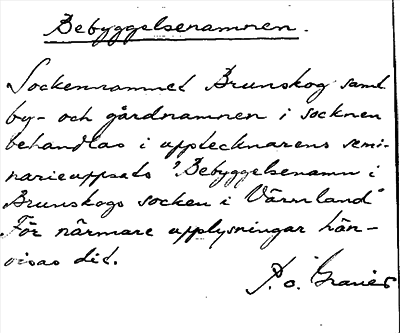 Bebyggelsenamnen.
Sockennamnet Brunskog samt
by- och gårdnamnen i socknen
behandlas i upptecknarens semi-
narieuppsats "Bebyggelsenamn i
Brunskogs socken i Värmland"
För närmare upplysningar hän-
visas dit.